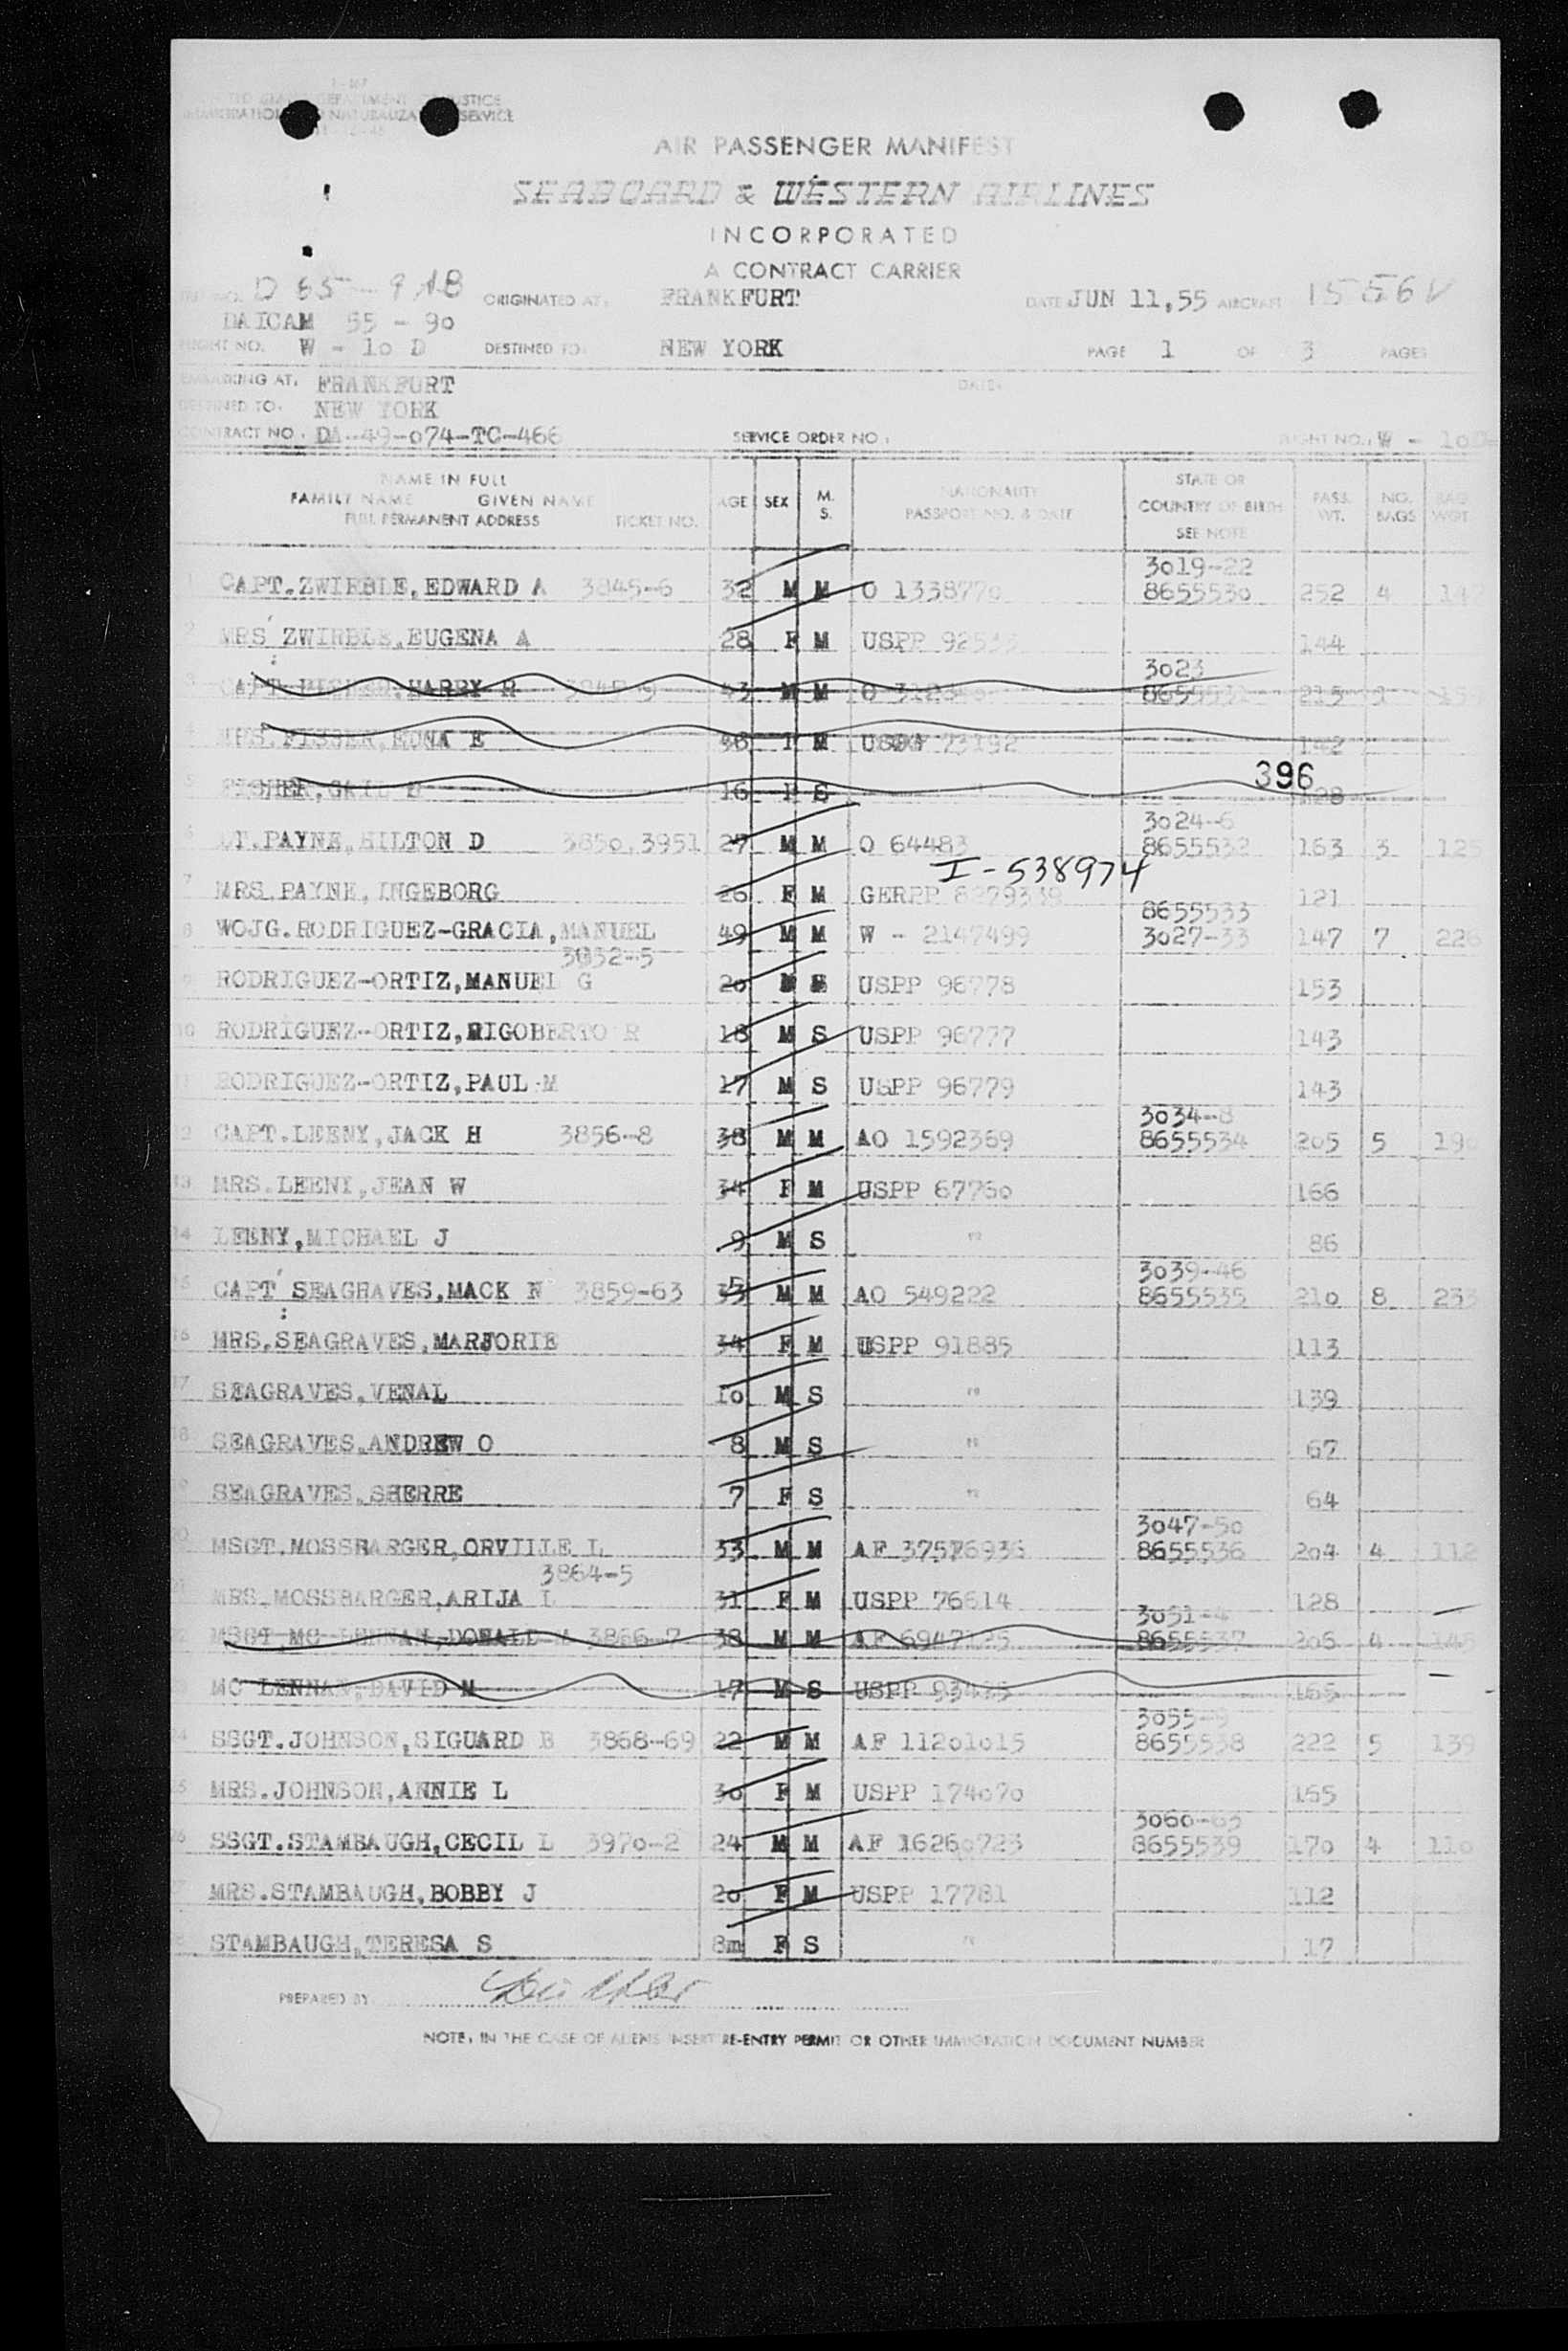 AIR PASSENGER MANIFEST
SEABOARD & WESTERN AIRLINES
INCORPORATED
A CONTRACT CARRIER
ORIGINATED AT: FRANKFURT DATE JUN 11,55 AIRCRAFT
DAICAM 55 - 90
FLIGHT NO. W - 10 D DESTINED TO: NEW YORK PAGE 1 OF 3 PAGES
EMBARKING AT. FRANKFURT DATE:
DESTINED TO. NEW YORK
CONTRACT NO. DA-49-074-TC-466 SERVICE ORDER NO. FLIGHT NO. W - 10D
NAME IN FULL
FAMILY NAME GIVEN NAME
FULL PERMANENT ADDRESS TICKET NO.
AGE SEX M. S.
NATIONALITY
PASSPORT NO. & DATE
STATE OR
COUNTRY OF BIRTH
SEE NOTE
PASS. WT. NO. BAGS BAG WGT
3019-22
1 CAPT.ZWIRBLE,EDWARD A 3845-6 32 M M O 1338770 8655530 252 4
2 MRS ZWIRBLE,EUGENA A 28 F M USPP 144
3023
3 HARRY R 43 M M 215
4 MRS.FISHER,EDNA E F M 73192 142
5 FISHER,GAIL 16 F S 128
396
3024-6
6 LT.PAYNE,HILTON D 3850,3951 27 M M O 64483 8655532 163 3 125
I-538974
7 MRS.PAYNE,INGEBORG 26 F M GERPP 121
8655533
8 WOJG.RODRIGUEZ-GRACIA,MANUEL 49 M M W - 2147499 3027-33 147 7 226
3032-5
9 RODRIGUEZ-ORTIZ,MANUEL G 20 M USPP 96778 153
10 RODRIGUEZ-ORTIZ,RIGOBERTO R 18 M S USPP 96777 143
11 RODRIGUEZ-ORTIZ,PAUL M 17 M S USPP 96779 143
3034-8
12 CAPT.LEENY,JACK H 3856-8 38 M M AO 1592369 8655534 205 5
13 MRS.LEENY,JEAN W 34 F M USPP 67760 166
14 LEENY,MICHAEL J 9 M S " 86
3039-46
15 CAPT SEAGRAVES,MACK N 3859-63 35 M M AO 549222 8655535 210 8
16 MRS.SEAGRAVES,MARJORIE 34 F M USPP 91885 113
17 SEAGRAVES,VENAL 10 M S " 139
18 SEAGRAVES,ANDREW O 8 M S " 67
19 SEAGRAVES,SHERRE 7 F S " 64
3047-50
20 MSGT.MOSSBARGER,ORVILLE L 33 M M 8655536 204 4 112
3864-5
21 MRS.MOSSBARGER,ARIJA L 31 F M USPP 76614 128
3051-4
22 MSGT MC LENNAN,DONALD 3866-7 38 M M 8655537 206 4 145
23 MC LENNAN,DAVID M 17 M S USPP 165
3055-9
24 SSGT.JOHNSON,SIGUARD B 3868-69 22 M M AF 11201015 8655538 222 5 139
25 MRS.JOHNSON,ANNIE L 30 F M USPP 174070 155
26 SSGT.STAMBAUGH,CECIL L 3970-2 24 M M AF 16260723 8655539 170 4 110
27 MRS.STAMBAUGH,BOBBY J 20 F M USPP 17781 112
28 STAMBAUGH,TERESA S 8m F S " 17
PREPARED BY
NOTE: IN THE CASE OF ALIENS INSERT RE-ENTRY PERMIT OR OTHER IMMIGRATION DOCUMENT NUMBER